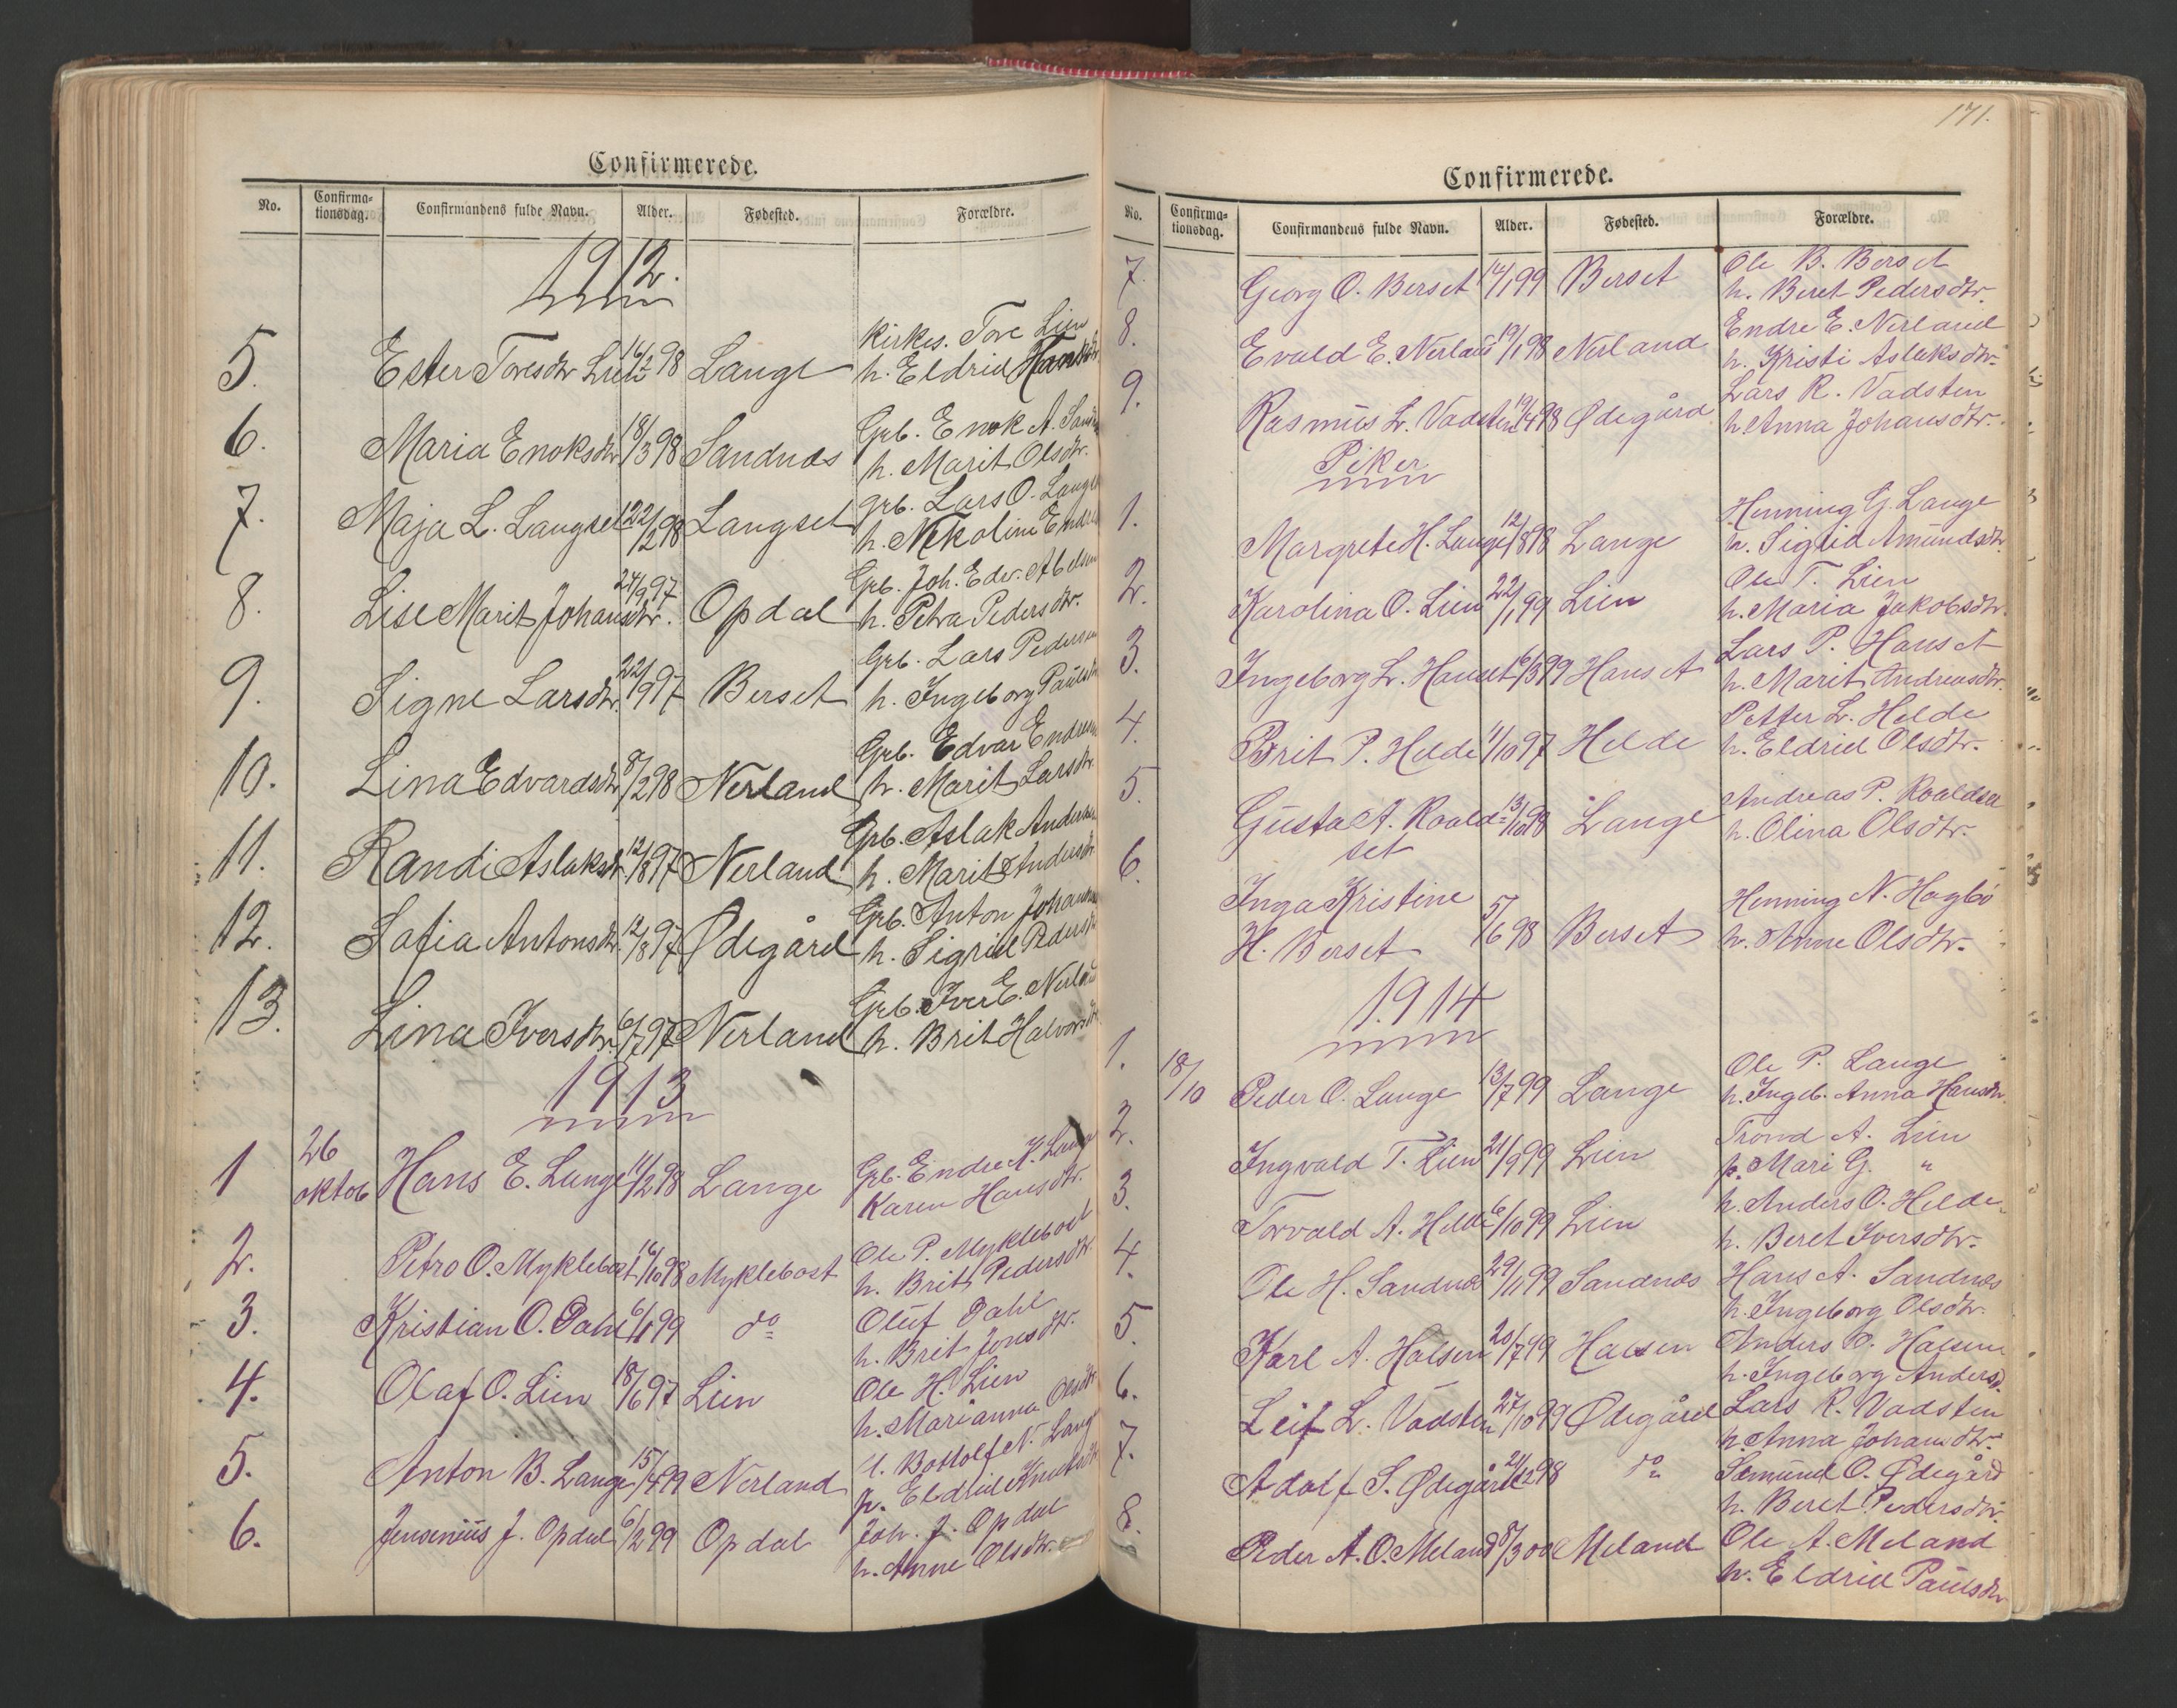 Confirmerede.
No. Confirma-tionsdag. Confirmandens fulde Navn. Alder. Fødested. Forældre.
1912.
5. Ester Toresdtr Lien 16/2 98 Lange kirkes. Tore Lien
h. Eldrid
6. Maria Enoksdtr 18/3 98 Sandnes Grb. Enok A. Sandn
h. Marit Olsdtr.
7. Maja L. Langset 22/12 98 Langset grb. Lars O. Langs
h. Nekoline Endre
8. Lise Marit Johansdtr. 24/9 97 Opdal Grb. Joh. Edv. Abelsen
h. Petra Pedersdtr.
9. Signe Larsdtr. 22/9 97 Berset Grb. Lars Pedersen
h. Ingeborg Paulsdtr
10. Lina Edvardsdtr 8/2 98 Nerland Grb. Edvar Endresen
h. Marit Larsdtr.
11. Randi Aslaksdtr 12/8 97 Nerland Grb. Aslak Andersen
h. Marit Andersdtr
12. Sofia Antonsdtr. 12/8 97 Ødegård Grb. Anton Johansen
h. Sigrid Pedersdtr
13. Lina Iversdtr. 6/7 97 Nerland Grb. Iver E. Nerland
h. Brit Halvorsdtr
1913
1 26 oktob Hans E. Lange 11/2 98 Lange Grb. Endre K. Lange
Karen Hansdtr.
2. Petro O. Myklebost 16/10 98 Myklebost Ole P. Myklebost
h. Brit Pedersdtr.
3. Kristian O. Dahl 6/1 99 do Oluf Dahl
h. Brit Jonsdtr.
4. Olaf O. Lien 18/6 97 Lien Ole H. Lien
h. Marianna Olsdtr
5. Anton B. Lange 15/4 99 Nerland Bottolf N. Lang
p. Eldrid Knutsdtr
6. Jensenius J. Opdal 6/2 99 Opdal Joh. J. Opdal
h. Anne Olsdtr.
171.
Confirmerede.
No. Confirma-tionsdag. Confirmandens fulde Navn. Alder. Fødested. Forældre.
7. Georg O. Berset 14/1 99 Berset Ole B. Berset
h. Beret Pedersdtr.
8. Evald E. Nerland 19/1 98 Nerland Endre E. Nerland
h. Kristi Aslaksdtr.
9. Rasmus L. Vadsten 19/4 98 Ødegård Lars R. Vadsten
h. Anna Johansdtr.
Piker
1. Margrete H. Lange 12/8 98 Lange Henning G. Lange
h. Sigrid Amundsdtr.
2. Karolina O. Lien 22/1 99 Lien Ole T. Lien
h. Maria Jakobsdtr.
3. Ingeborg L. Hanset 6/3 99 Hanset Lars P. Hanset
h. Marit Andreasdtr.
4. Brit P. Helde 1/10 97 Helde Petter L. Helde
h. Eldrid Olsdtr.
5. Gusta A. Roald- 13/10 98 Lange Andreas P. Roaldset
set h. Olina Olsdtr.
6. Inga Kristine Henning N. Hagbø
H. Berset 5/6 98 Berset h. Anne Olsdtr.
1914
1. 18/10 Peder O. Lange 13/7 99 Lange Ole P. Lange
h. Ingeb. Anna Hansdtr.
2. Ingvald T. Lien 21/9 99 Lien Trond A. Lien
p. Mari G. "
3. Torvald A. Helde 6/10 99 Lien h. Anders O. Helde
h. Beret Iversdtr.
4. Ole H. Sandnes 29/1 99 Sandnes Hans A. Sandnes
h. Ingeborg Olsdtr.
5. Karl A. Halsen 20/7 99 Halsen Anders O. Halsen
h. Ingeborg Andersd.
6. Leif L. Vadsten 27/10 99 Ødegård Lars R. Vadsten
h. Anna Johansdtr.
7. Adolf S. Ødegård 21/12 98 do Semund O. Ødegård
h. Beret Pedersdtr.
8. Peder A. O. Meland 8/3 00 Meland Ole A. Meland
h. Eldrid Paulsdtr